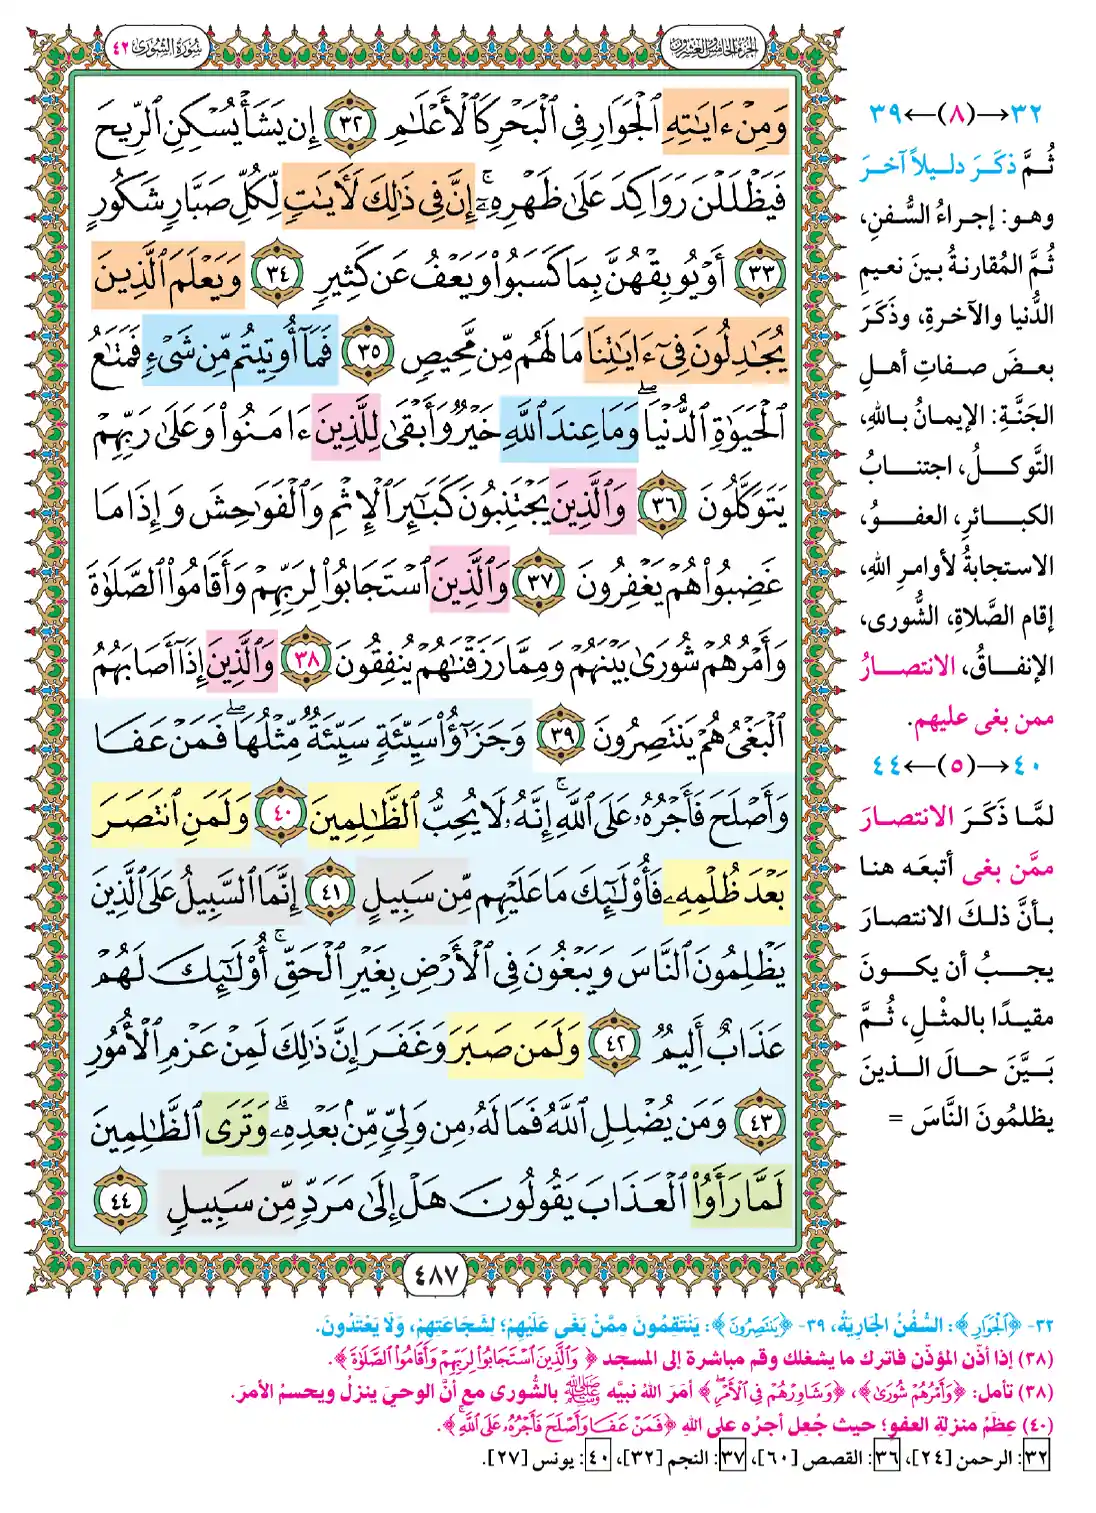 الجزء الخامس والعشرون
سورة الشورى ٤٢
وَمِنْ ءَايَٰتِهِ ٱلْجَوَارِ فِى ٱلْبَحْرِ كَٱلْأَعْلَٰمِ ٣٢ إِن يَشَأْ يُسْكِنِ ٱلرِّيحَ
فَيَظْلَلْنَ رَوَاكِدَ عَلَىٰ ظَهْرِهِۦٓ ۚ إِنَّ فِى ذَٰلِكَ لَءَايَٰتٍ لِّكُلِّ صَبَّارٍ شَكُورٍ
٣٣ أَوْ يُوبِقْهُنَّ بِمَا كَسَبُوا۟ وَيَعْفُ عَن كَثِيرٍ ٣٤ وَيَعْلَمَ ٱلَّذِينَ
يُجَٰدِلُونَ فِىٓ ءَايَٰتِنَا مَا لَهُم مِّن مَّحِيصٍ ٣٥ فَمَآ أُوتِيتُم مِّن شَىْءٍ فَمَتَٰعُ
ٱلْحَيَوٰةِ ٱلدُّنْيَا ۖ وَمَا عِندَ ٱللَّهِ خَيْرٌ وَأَبْقَىٰ لِلَّذِينَ ءَامَنُوا۟ وَعَلَىٰ رَبِّهِمْ
يَتَوَكَّلُونَ ٣٦ وَٱلَّذِينَ يَجْتَنِبُونَ كَبَٰٓئِرَ ٱلْإِثْمِ وَٱلْفَوَٰحِشَ وَإِذَا مَا
غَضِبُوا۟ هُمْ يَغْفِرُونَ ٣٧ وَٱلَّذِينَ ٱسْتَجَابُوا۟ لِرَبِّهِمْ وَأَقَامُوا۟ ٱلصَّلَوٰةَ
وَأَمْرُهُمْ شُورَىٰ بَيْنَهُمْ وَمِمَّا رَزَقْنَٰهُمْ يُنفِقُونَ ٣٨ وَٱلَّذِينَ إِذَآ أَصَابَهُمُ
ٱلْبَغْىُ هُمْ يَنتَصِرُونَ ٣٩ وَجَزَٰٓؤُا۟ سَيِّئَةٍ سَيِّئَةٌ مِّثْلُهَا ۖ فَمَنْ عَفَا
وَأَصْلَحَ فَأَجْرُهُۥ عَلَى ٱللَّهِ ۚ إِنَّهُۥ لَا يُحِبُّ ٱلظَّٰلِمِينَ ٤٠ وَلَمَنِ ٱنتَصَرَ
بَعْدَ ظُلْمِهِۦ فَأُو۟لَٰٓئِكَ مَا عَلَيْهِم مِّن سَبِيلٍ ٤١ إِنَّمَا ٱلسَّبِيلُ عَلَى ٱلَّذِينَ
يَظْلِمُونَ ٱلنَّاسَ وَيَبْغُونَ فِى ٱلْأَرْضِ بِغَيْرِ ٱلْحَقِّ ۚ أُو۟لَٰٓئِكَ لَهُمْ
عَذَابٌ أَلِيمٌ ٤٢ وَلَمَن صَبَرَ وَغَفَرَ إِنَّ ذَٰلِكَ لَمِنْ عَزْمِ ٱلْأُمُورِ
٤٣ وَمَن يُضْلِلِ ٱللَّهُ فَمَا لَهُۥ مِن وَلِىٍّ مِّنۢ بَعْدِهِۦ ۗ وَتَرَى ٱلظَّٰلِمِينَ
لَمَّا رَأَوُا۟ ٱلْعَذَابَ يَقُولُونَ هَلْ إِلَىٰ مَرَدٍّ مِّن سَبِيلٍ ٤٤
٤٨٧
٣٢→(٨)←٣٩
ثُمَّ ذكَرَ دليلاً آخرَ
وهو: إجراءُ السُّفنِ،
ثُمَّ المُقارنةُ بينَ نعيمِ
الدُّنيا والآخرةِ، وذكَرَ
بعضَ صفاتِ أهلِ
الجَنَّةِ: الإيمانُ باللهِ،
التَّوكلُ، اجتنابُ
الكبائرِ، العفوُ،
الاستجابةُ لأوامرِ اللهِ،
إقام الصَّلاةِ، الشُّورى،
الإنفاقُ، الانتصارُ
ممن بغى عليهم.
٤٠→(٥)←٤٤
لمَّا ذكَرَ الانتصارَ
ممَّن بغى أتبعَه هنا
بأنَّ ذلكَ الانتصارَ
يجبُ أن يكونَ
مقيدًا بالمثْلِ، ثُمَّ
بَيَّنَ حالَ الذينَ
يظلمُونَ النَّاسَ =
٣٢- ﴿ٱلْجَوَارِ﴾: السُّفُنُ الجَارِيَةُ، ٣٩- ﴿يَنتَصِرُونَ﴾: يَنْتَقِمُونَ مِمَّنْ بَغَى عَلَيْهِمْ؛ لِشَجَاعَتِهِمْ، وَلَا يَعْتَدُونَ.
(٣٨) إذا أذّن المؤذّن فاترك ما يشغلك وقم مباشرة إلى المسجد ﴿وَٱلَّذِينَ ٱسْتَجَابُوا۟ لِرَبِّهِمْ وَأَقَامُوا۟ ٱلصَّلَوٰةَ﴾.
(٣٨) تأمل: ﴿وَأَمْرُهُمْ شُورَىٰ﴾، ﴿وَشَاوِرْهُمْ فِى ٱلْأَمْرِ﴾ أمَرَ اللهُ نبيَّه ﷺ بالشُّورى مع أنَّ الوحيَ ينزلُ ويحسمُ الأمرَ.
(٤٠) عِظَمُ منزلةِ العفوِ؛ حيث جُعِل أجرُه على اللهِ ﴿فَمَنْ عَفَا وَأَصْلَحَ فَأَجْرُهُۥ عَلَى ٱللَّهِ﴾.
٣٢: الرحمن [٢٤]، ٣٦: القصص [٦٠]، ٣٧: النجم [٣٢]، ٤٠: يونس [٢٧].